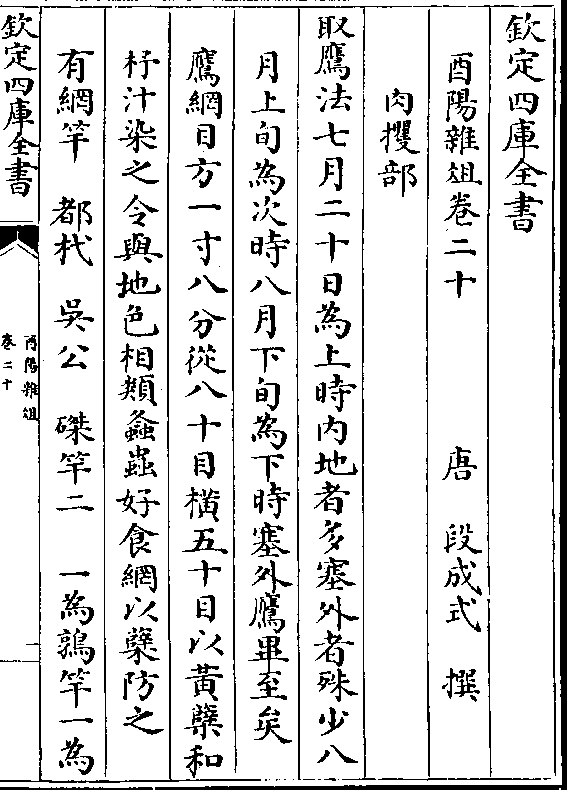 欽定四庫全書
酉陽雜俎卷二十
唐 段成式 撰
肉攫部
取鷹法七月二十日為上時内地者多塞外者殊少八
月上旬為次時八月下旬為下時塞外鷹畢至矣
鷹網目方一寸八分從八十目橫五十目以黃蘗和
杼汁染之令與地色相類螽蟲好食網以蘗防之
有網竿 都杙 吳公 磔竿二 一為鶉竿一為
欽定四庫全書
酉陽雜俎
卷二十
一